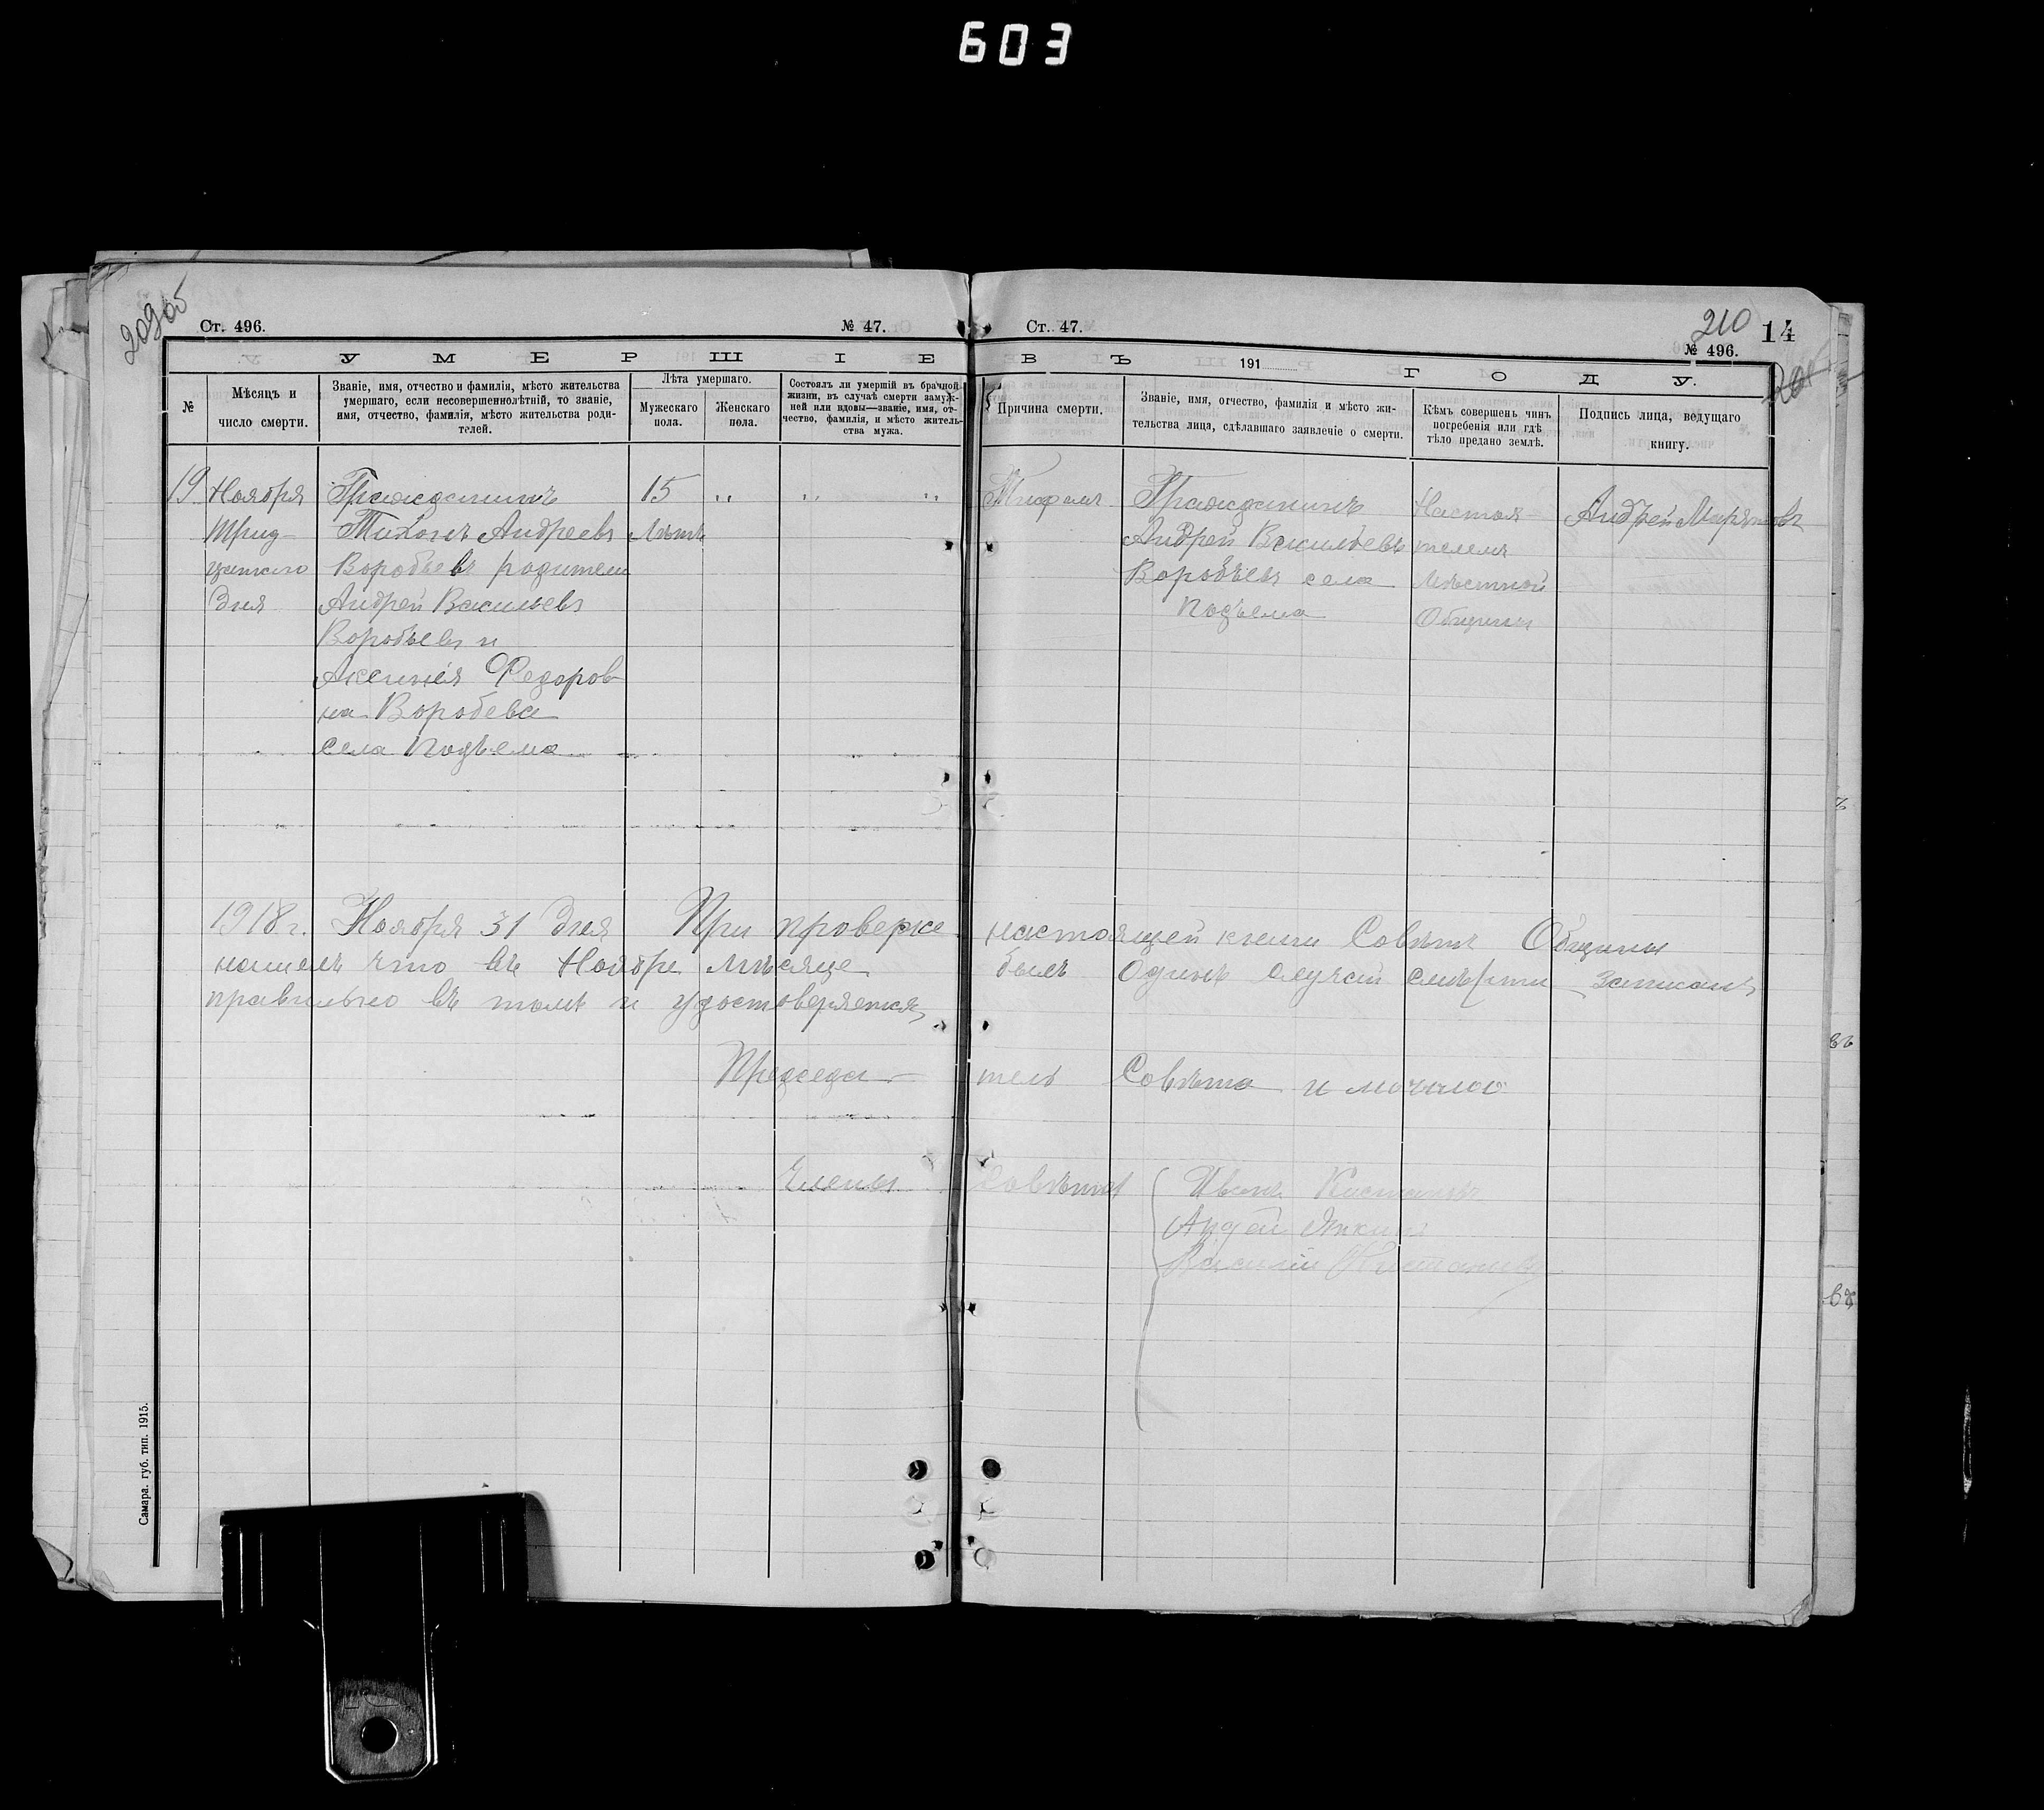 603
Ст. 496.
№ 47.
Ст. 47.
210
14
№ 496.
УМЕРШІЕ ВЪ 191 ГОДУ.
№
Мѣсяцъ и
число смерти.
Званіе, имя, отчество и фамилія, мѣсто жительства
умершаго, если несовершеннолѣтній, то званіе,
имя, отчество, фамилія, мѣсто жительства роди-
телей.
Лѣта умершаго.
Мужескаго
пола.
Женскаго
пола.
Состоялъ ли умершій въ брачной
жизни, въ случаѣ смерти замуж-
ней или вдовы—званіе, имя, от-
чество, фамилія, и мѣсто житель-
ства мужа.
Причина смерти.
Званіе, имя, отчество, фамилія и мѣсто жи-
тельства лица, сдѣлавшаго заявленіе о смерти.
Кѣмъ совершенъ чинъ
погребенія или гдѣ
тѣло предано землѣ.
Подпись лица, ведущаго
книгу.
19
Ноября
Трид-
цатаго
дня
Гражданинъ
Тихонъ Андреевъ
Воробьевъ родители
Андрей Васильевъ
Воробьевъ и
Аксинія Федоров
на Воробева
села Подъема
15
лѣтъ
Тифомъ
Гражданинъ
Андрей Васильевъ
Воробьевъ села
Подъема
Настоя-
телемъ
мѣстной
Общины
Андрей
1918 г. Ноября 31 дня При проверке настоящей книги Совѣтъ Общины
нашелъ что въ Ноябре мѣсяце былъ Одинъ случай смѣрти записанъ
правильно въ томъ и удостоверяется,
Председа- тель Совѣта
Члены Совѣта
Иванъ
Андрей
Василий
Самара. губ. тип. 1915.